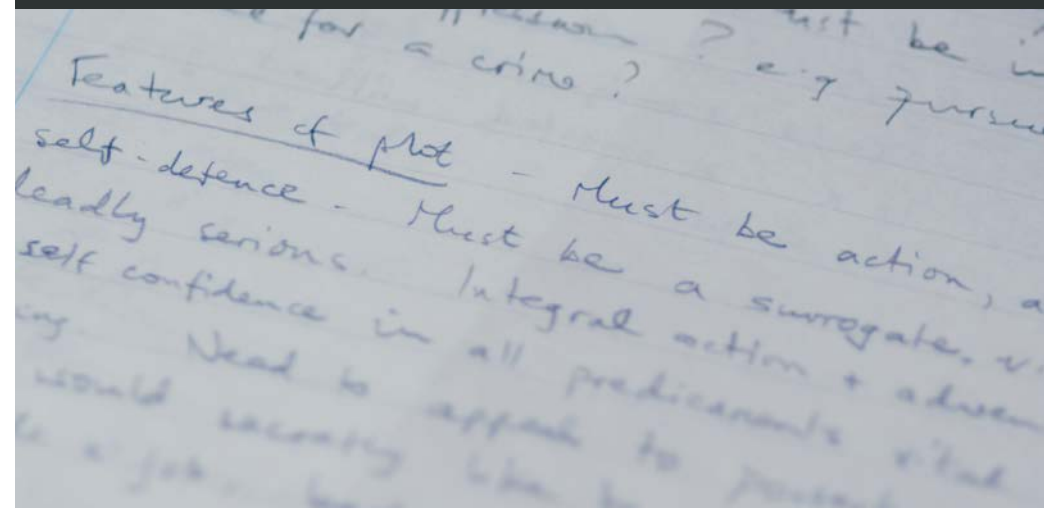 must be in
for a crime? e.g pursue
Features of plot - Must be action, a
self-defence. Must be a surrogate.
deadly serious. Integral action + adven
self confidence in all predicaments vital
ing Need to appeal to
would secretly like
a job.